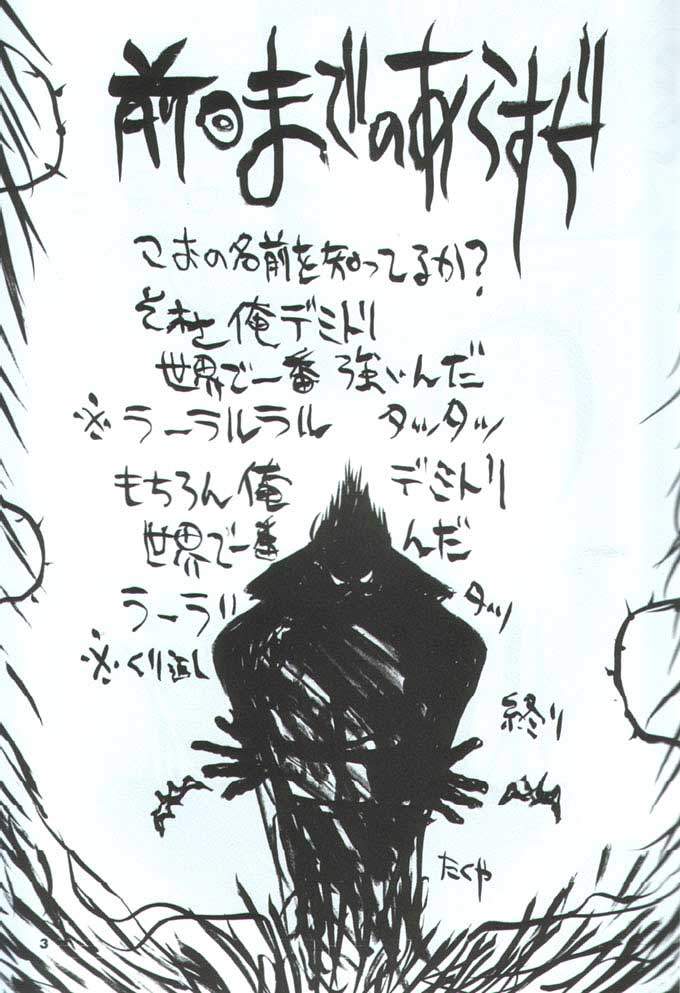 前回までのあらすじ
こおの名前を知ってるか?
それ 俺デミトリ
世界で一番 強いんだ
※ラーラルラル タッタッ
もちろん俺 デミトリ
世界で一番 んだ
ラーラ タッ
※くり返し
終り
たくや
3